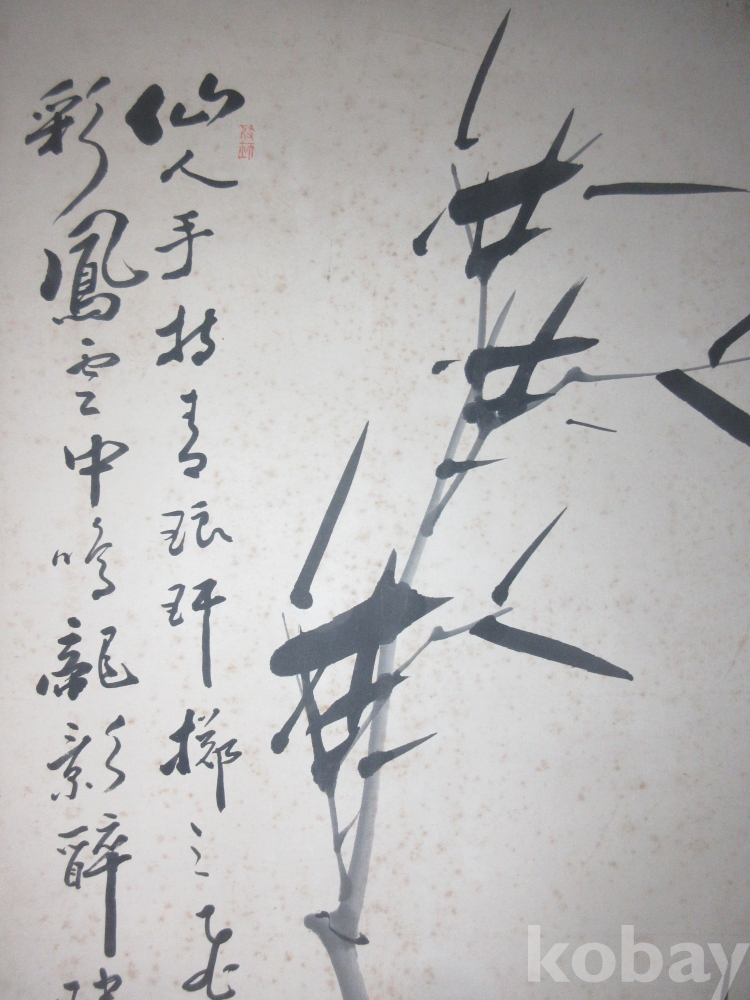 仙人手持青琅玕擲之
彩鳳雲中鳴龍影醉
kobay